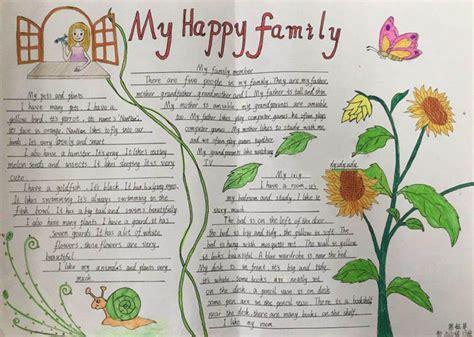 My Happy family
My pets and plants
I have many pets. I have a
yellow bird. It's parrot. It's name is "NanNan".
It's face is orange. NanNan likes to fly
It's very lovely and smart.
I also have a hamster. It's grey. It likes eating
melon seeds and insects. It likes sleeping. It is very
cute.
I have a goldfish. It's black. It has big eyes.
It likes swimming. It's always swimming in the
fish bowl. It has a big tail and swims beautifully
I also have many plants. I have a
Seven gourds. It has a lot of white
flowers. Those flowers are very
beautiful
I like my animals and plants very
much.
My family member
There are five people in my family. They are my father,
mother, grandfather, grandmother and I. My father is tall and thin.
My mother is amiable. My grandparents are amiable
too. My father likes playing computer games. He often plays
computer games. My mother likes to study with me,
and we often play games together.
My grandparents like watching
TV.
My
I have a room. It's
my bedroom and study. I like it
very much.
The bed is on the left of the door.
The bed is big and tidy. The yellow is soft. The
bed is hung with mosquito net. The wall is yellow
It looks beautiful. A blue wardrobe is near the bed.
My desk is in front. It's big and tidy.
It's useful. Some books are neatly set
on the desk. A pencil vase is on desk
some pen are in the pencil vase. There is a bookshelf
near the desk. There are many books on the shelf.
I like my room.